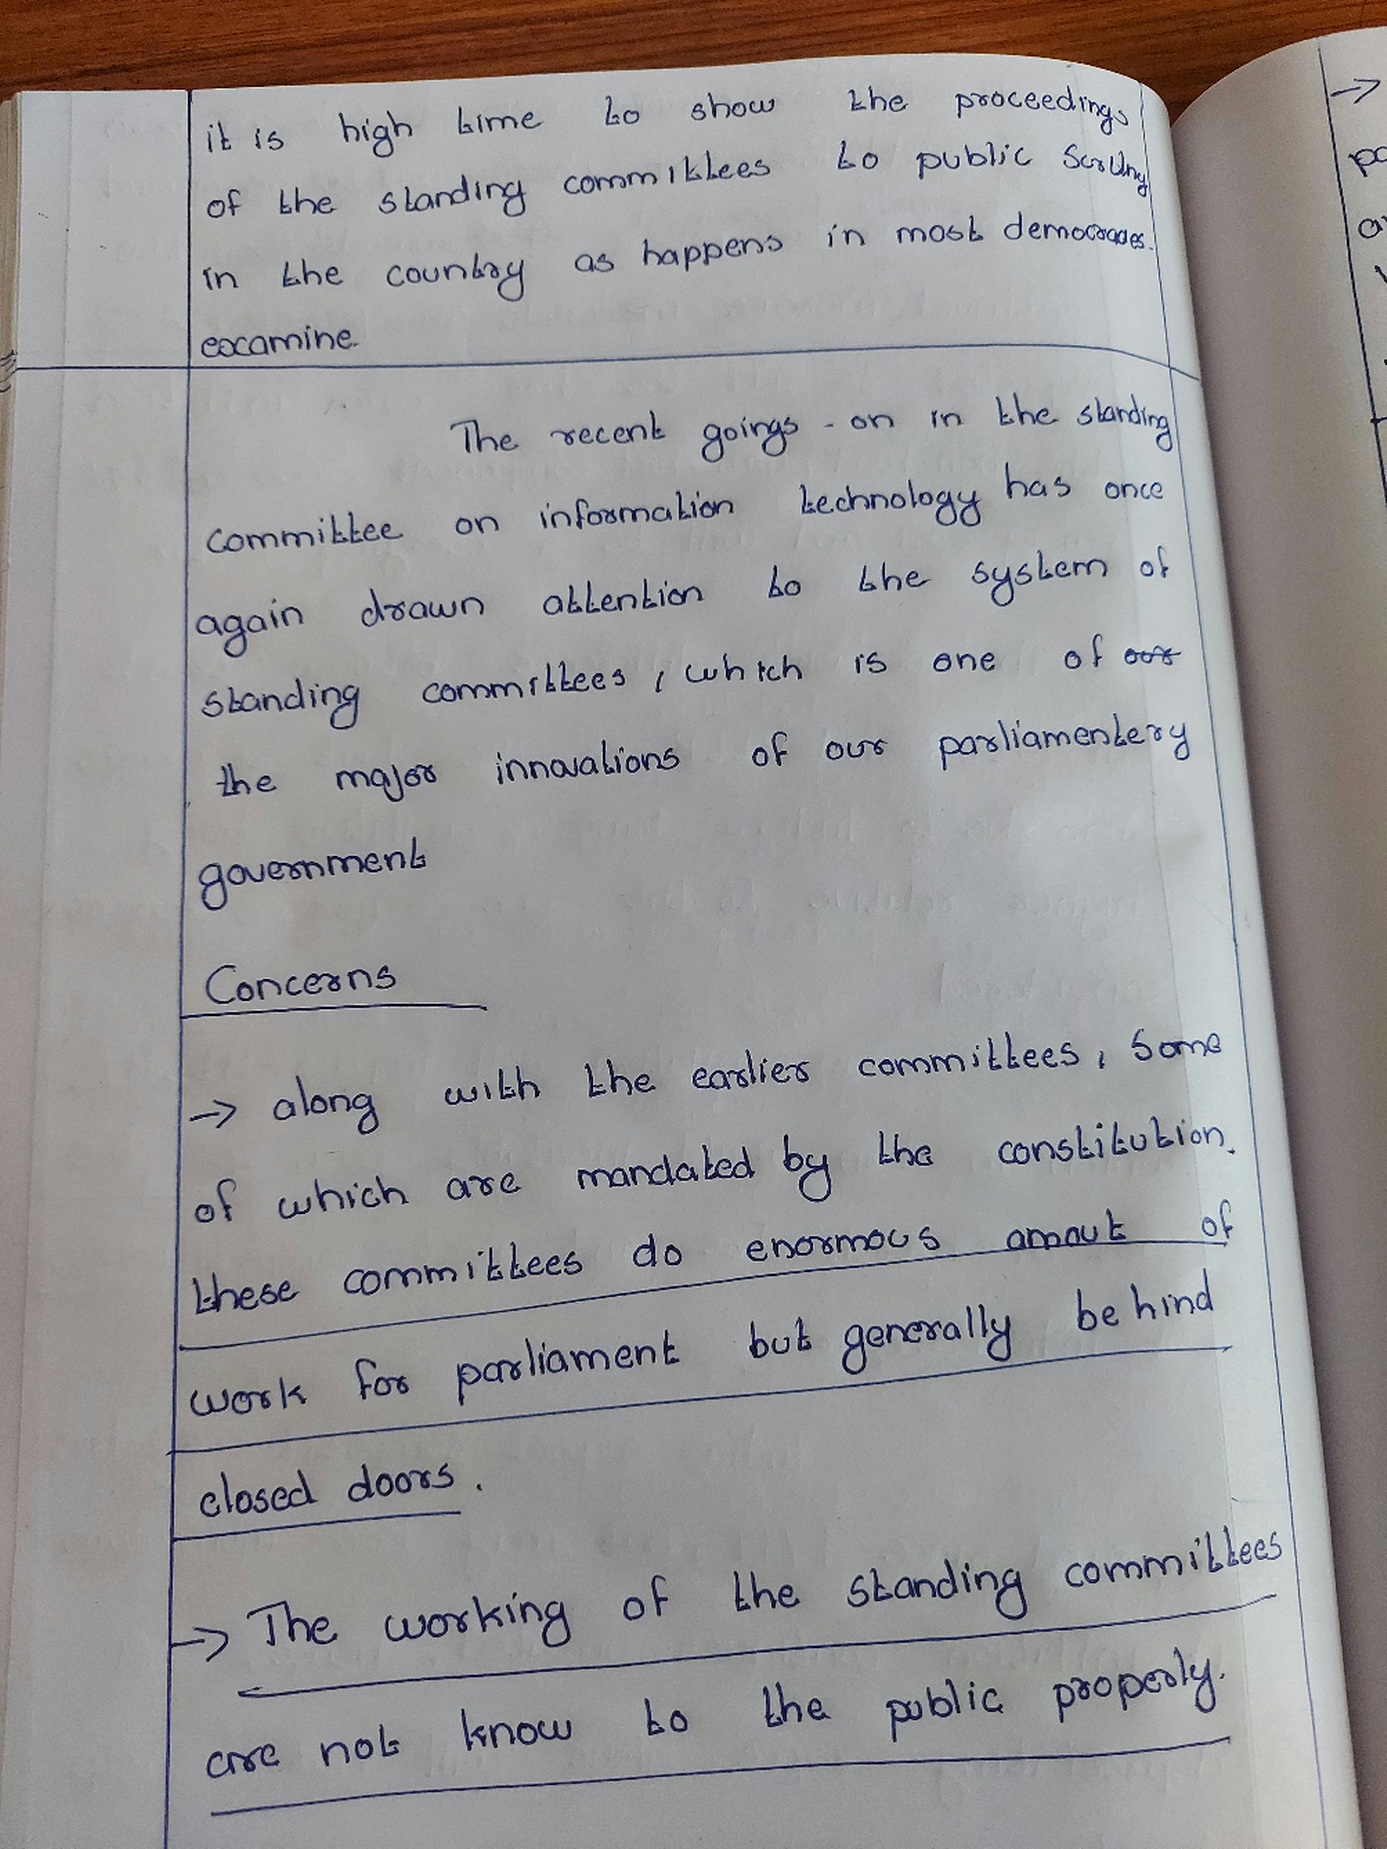 it is high time to show the proceedings
of the standing committees to public Scrutiny
in the country as happens in most democracies.
examine.
The recent goings - on in the standing
committee on information technology has once
again drawn attention to the system of
standing committees, which is one of our
the major innovations of our parliamentery
government
Concerns
→ along with the earlier committees, Some
of which are mandated by the constitution.
these committees do enormous amout of
work for parliament but generally behind
closed doors.
→ The working of the standing committees
are not know to the public properly.
→